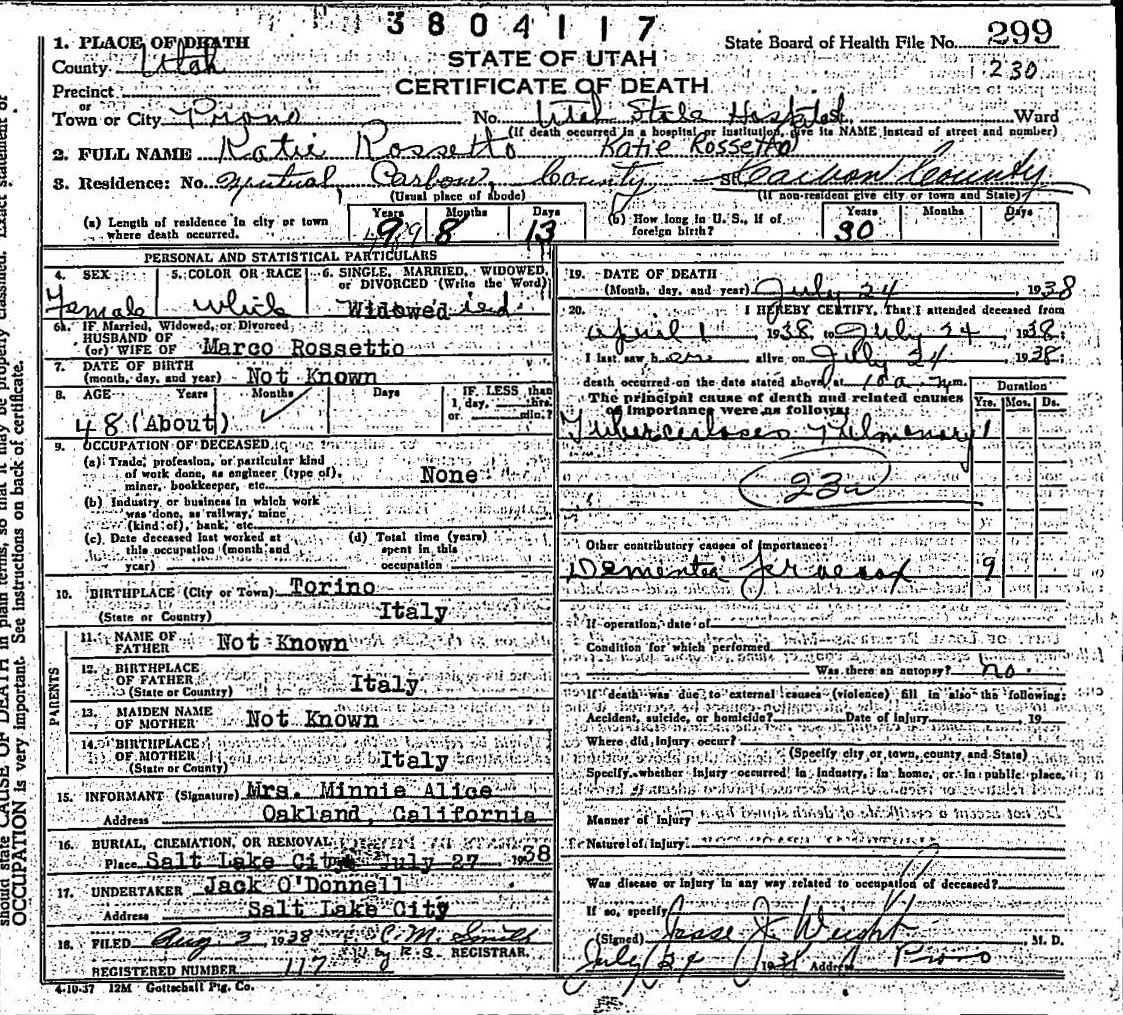 3804117
1. PLACE OF DEATH
State Board of Health File No. 299
County Utah
STATE OF UTAH
230
Precinct
CERTIFICATE OF DEATH
or
Town or City Provo No. Utah State Hospital St. Ward
(If death occurred in a hospital or institution, give its NAME instead of street and number)
2. FULL NAME Katie Rossetto Katie Rossetto
3. Residence: No. Carbon, County St. Carbon County
(Usual place of abode) (If non-resident give city or town and State)
(a) Length of residence in city or town where death occurred. Years 9 Months 8 Days 13
(b) How long in U. S., if of foreign birth? Years 30 Months Days
PERSONAL AND STATISTICAL PARTICULARS
4. SEX 5. COLOR OR RACE 6. SINGLE, MARRIED, WIDOWED, or DIVORCED (Write the Word)
Female White Widowed
6a. IF Married, Widowed, or Divorced
HUSBAND OF
(or) WIFE OF Marco Rossetto
7. DATE OF BIRTH
(month, day, and year) Not Known
8. AGE Years Months Days IF LESS than 1 day, Hrs. or min.?
48 (About)
9. OCCUPATION OF DECEASED
(a) Trade, profession, or particular kind
of work done, as engineer (type of),
miner, bookkeeper, etc. None
(b) Industry or business in which work
was done, as railway, mine
(kind of), bank, etc.
(c) Date deceased last worked at
this occupation (month and
year)
(d) Total time (years)
spent in this
occupation
10. BIRTHPLACE (City or Town) Torino
(State or Country) Italy
PARENTS
11. NAME OF FATHER Not Known
12. BIRTHPLACE OF FATHER
(State or Country) Italy
13. MAIDEN NAME OF MOTHER Not Known
14. BIRTHPLACE OF MOTHER
(State or County) Italy
15. INFORMANT (Signature) Mrs. Minnie Alice
Address Oakland, California
16. BURIAL, CREMATION, OR REMOVAL
Place Salt Lake City July 27 1938
17. UNDERTAKER Jack O'Donnell
Address Salt Lake City
18. FILED Aug. 3 1938 C. M. Smith
by R.S. REGISTRAR.
REGISTERED NUMBER 117
4-10-37 12M Gottschall Ptg. Co.
19. DATE OF DEATH
(Month, day, and year) July 24, 1938
20. I HEREBY CERTIFY, That I attended deceased from
April 1 1938 to July 24 1938
I last saw her alive on July 24 1938
death occurred on the date stated above, at 10 a. m.
The principal cause of death and related causes
of importance were as follows:
Duration
Yrs. Mos. Ds.
Tuberculoses Pulmonary 1
23a
Other contributory causes of importance:
Dementia Praecox 9
If operation, date of
Condition for which performed
Was there an autopsy? no.
If death was due to external causes (violence) fill in also the following:
Accident, suicide, or homicide? Date of injury 19
Where did injury occur?
(Specify city or town, county and State)
Specify whether injury occurred in industry, in home, or in public place.
Manner of Injury
Nature of Injury
Was disease or injury in any way related to occupation of deceased?
If so, specify
(Signed) Jesse J. Weight, M. D.
July 24 1938 Address Provo
should state CAUSE OF DEATH in plain terms, so that it may be properly classified. Exact statement of
OCCUPATION is very important. See instructions on back of certificate.